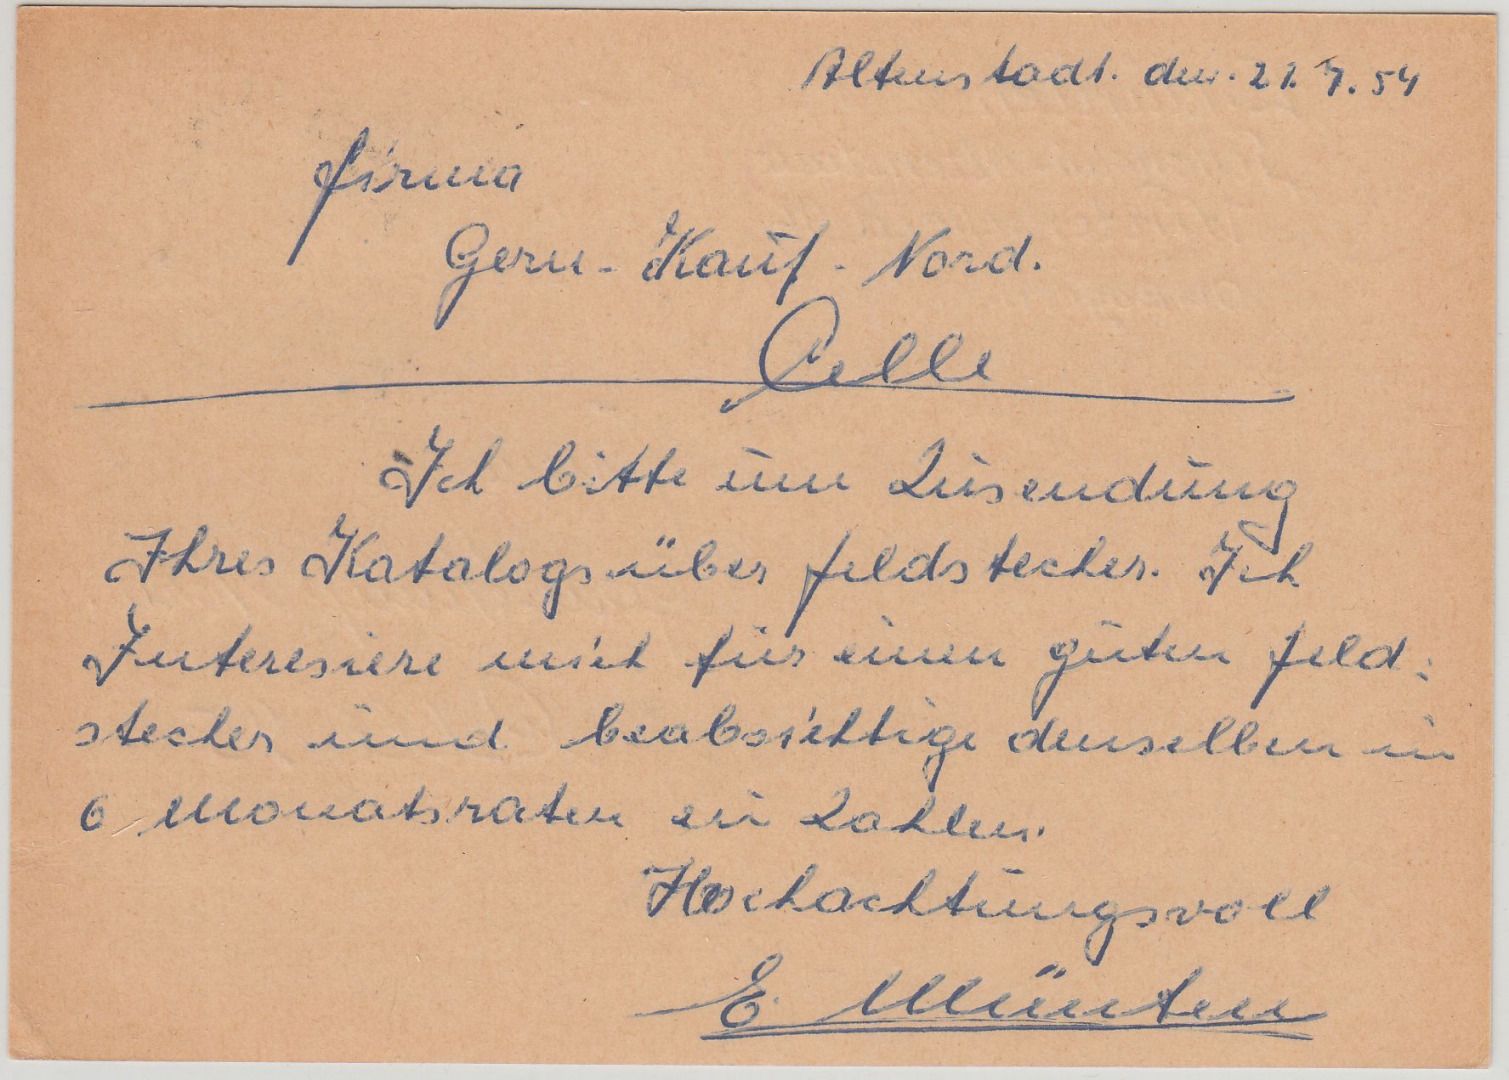 Altenstadt. den. 21. 7. 54
Firma
Gern-Kauf-Nord.
Celle
Ich bitte um Zusendung
Ihres Katalogs über Feldstecher. Ich
Interesiere mich für einen guten Feld:
stecher und beabsichtige denselben in
6 Monatsraten ein Zahlen.
Hochachtungsvoll
E. Münten